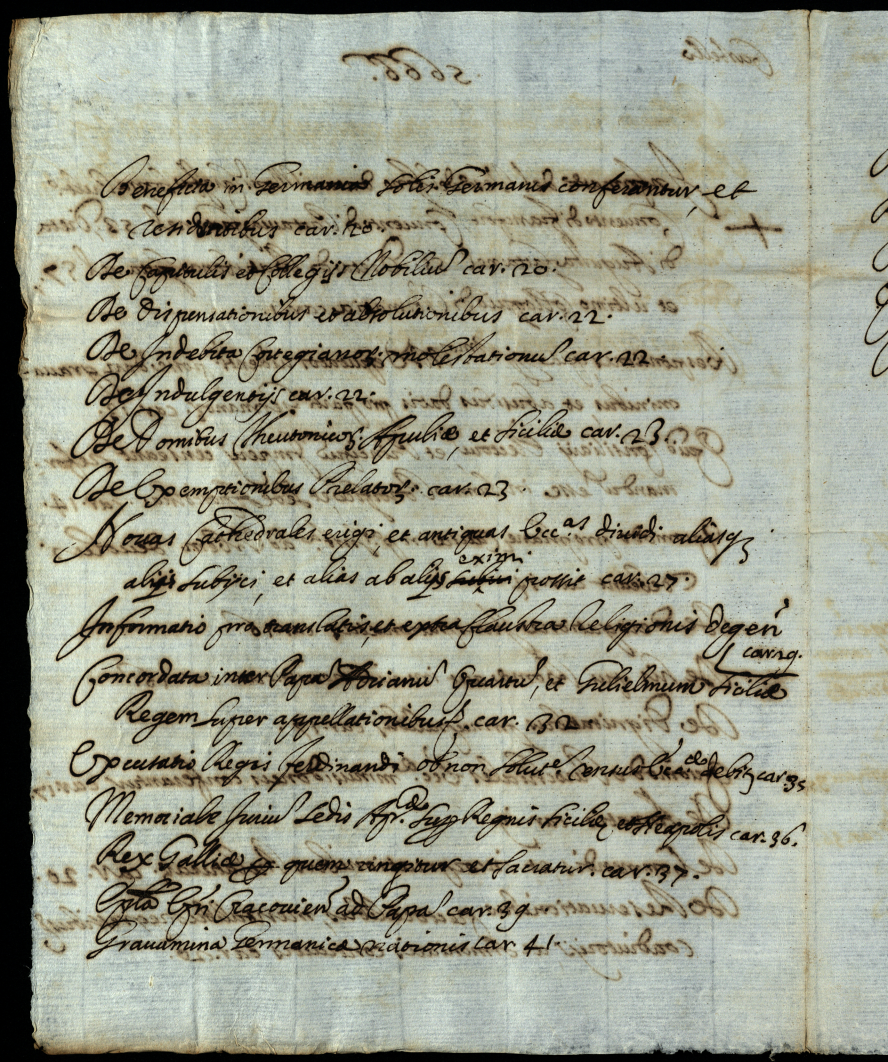 Beneficia in Germania solis Germanis conferantur, et
residentibus car. 20
De Capitulis et Collegijs Nobiliũ car. 20.
De dispensationibus et absolutionibus car. 22.
De Indebita Cortegianoꝝ molestationũ car. 22
De Indulgentijs car. 22.
De Domibus Theutonicoꝝ Apuliæ, et Siciliæ car. 23.
De Exemptionibus Prelatoꝝ car. 23
Novas Cathedrales erigi, et antiquas Ecc.as dividi aliasqʒ
alijs subijci, et alias ab alijs eximi possit car. 27.
Informatio pro translatis, et extra Claustra Religionis degen̄
car. 29.
Concordata inter Papã Adrianũ Quartũ, et Gulielmum Siciliæ
Regem super appellationibus, car. 32
Excusatio Regis Ferdinandi ob non solut. censũ debit. car. 35
Memoriale Juriũ Sedis Ap. sup. Regnis Siciliæ et Neapolis car. 36.
Rex Galliæ quem cingitur et sacratur. car. 37.
Ep̃la Ep̃i Cracovien̄ ad Papã car. 39
Gravamina Germanicæ nationis car. 41.